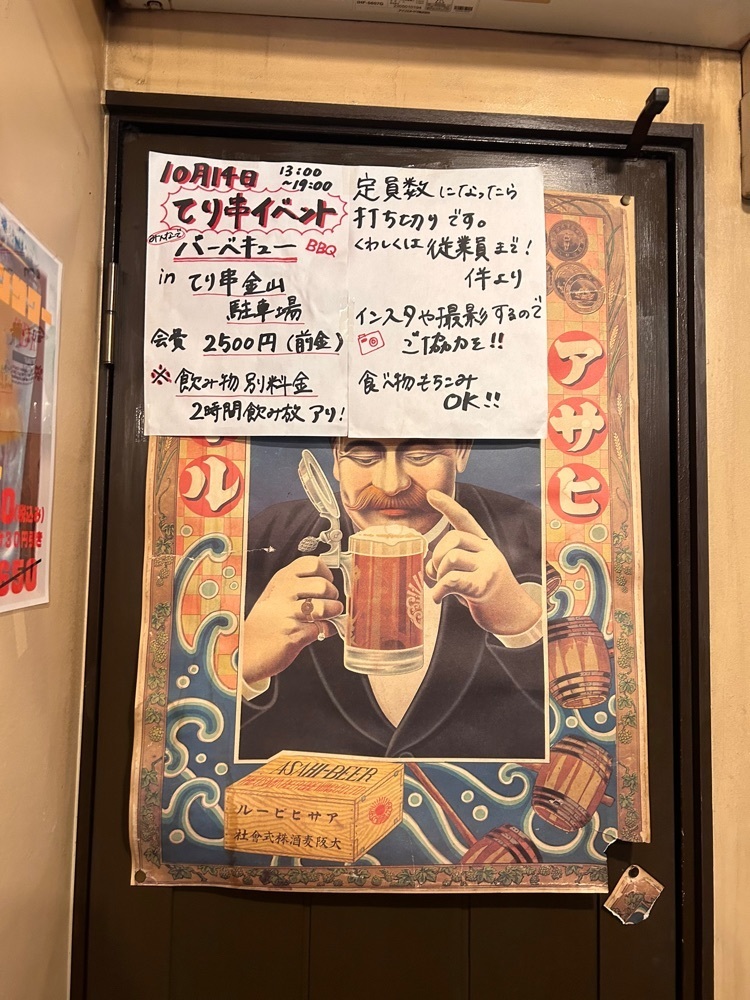 10月14日 13:00
～19:00
てり串イベント
みんなで
バーベキュー BBQ
in てり串金山
駐車場
会費 2500円(前金)
※飲み物別料金
2時間飲み放アリ!
定員数になったら
打ち切りです。
くわしくは従業員まで!
件より
インスタや撮影するので
ご協力を!!
食べ物もちこみ
OK!!
アサヒ
ール
ASAHI-BEER
ルービヒサア
社會式株酒麦阪大